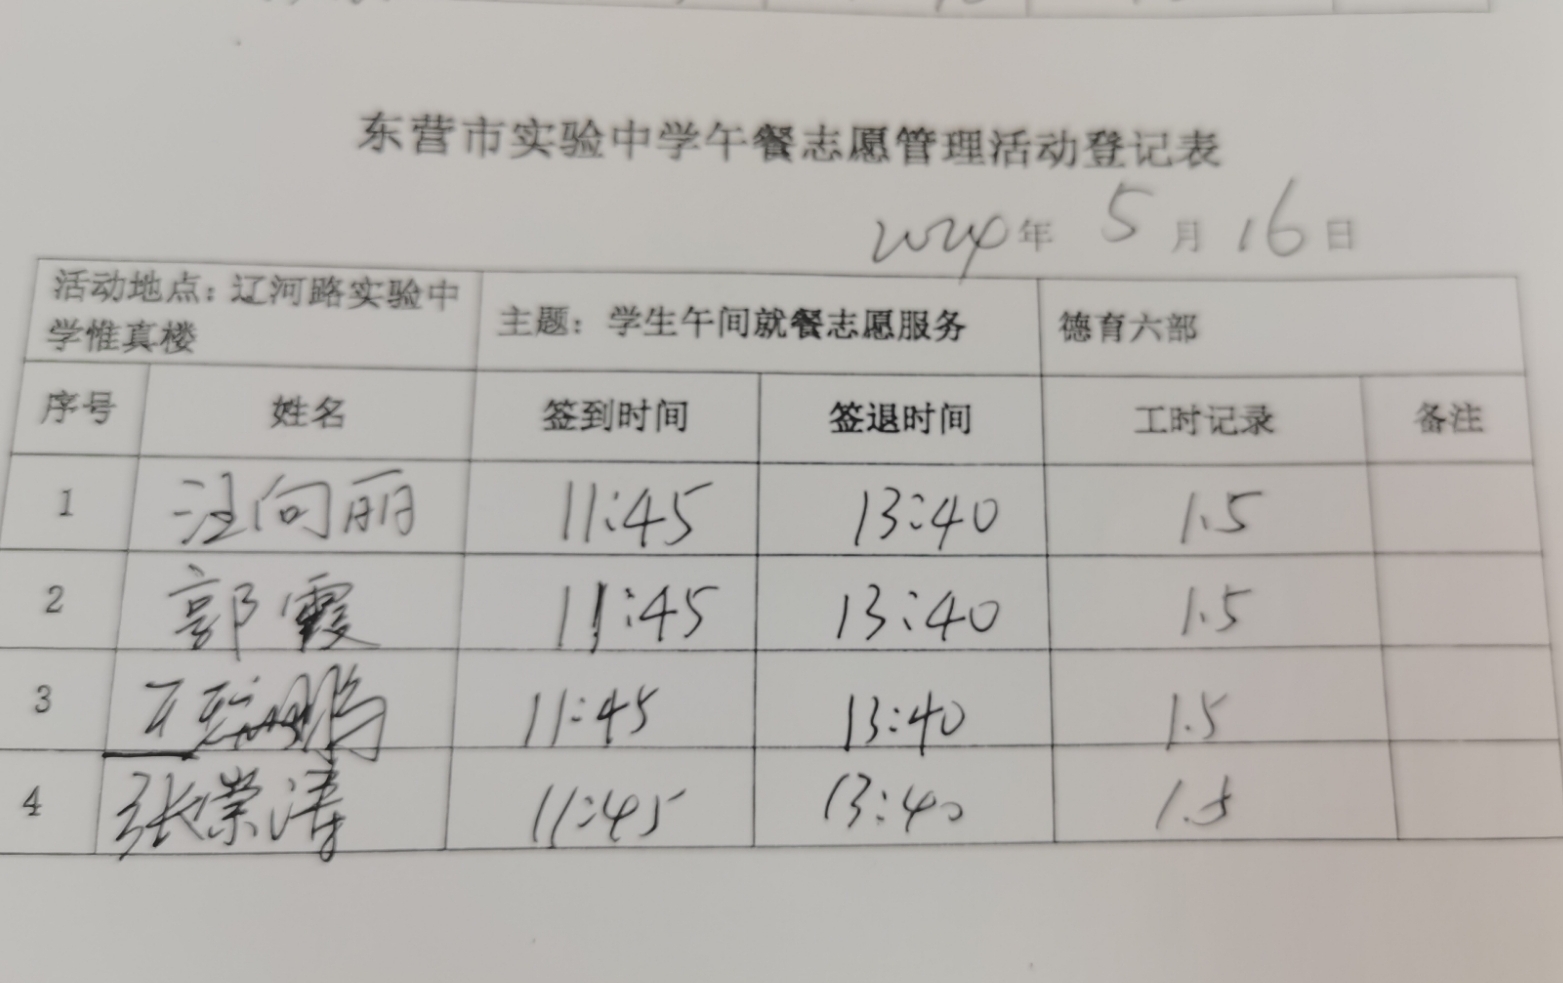 东营市实验中学午餐志愿管理活动登记表
2024年 5月16日
活动地点：辽河路实验中
学惟真楼
主题：学生午间就餐志愿服务
德育六部
序号 姓名 签到时间 签退时间 工时记录 备注
1 汪向丽 11:45 13:40 1.5
2 郭霞 11:45 13:40 1.5
3 11:45 13:40 1.5
4 张荣涛 11:45 13:40 1.5